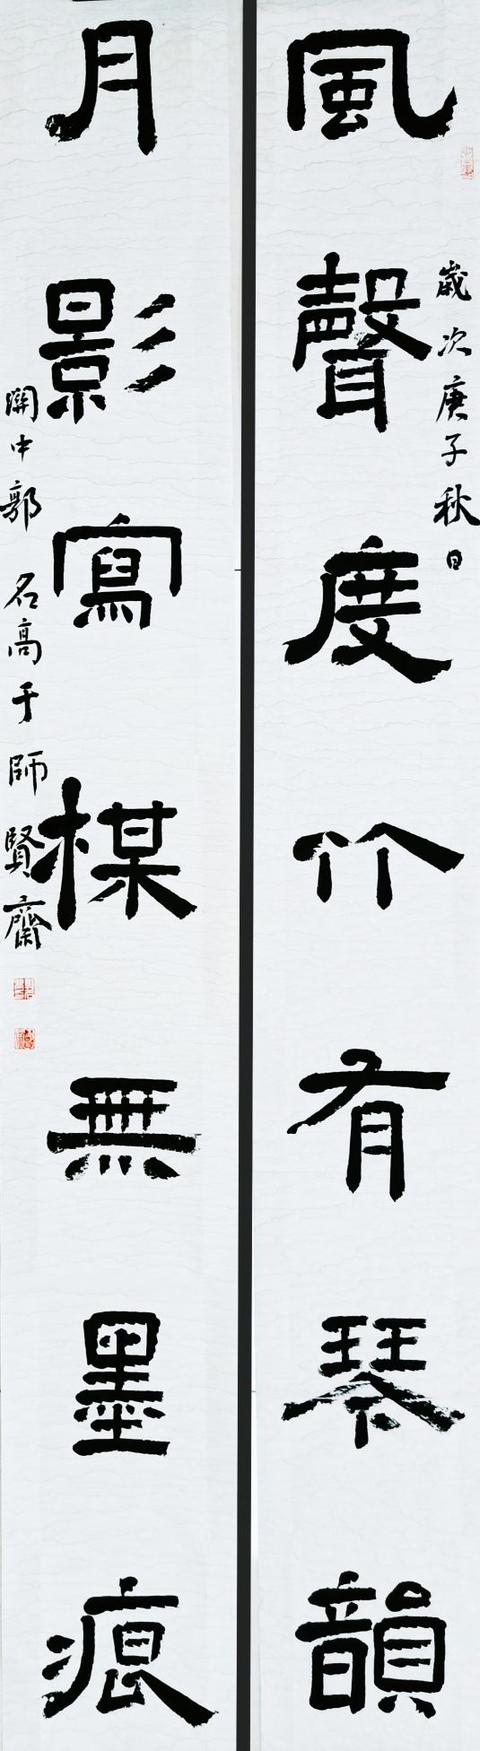 風聲度竹有琴韻
歲次庚子秋日
月影寫楳無墨痕
關中郭名高于師賢齋